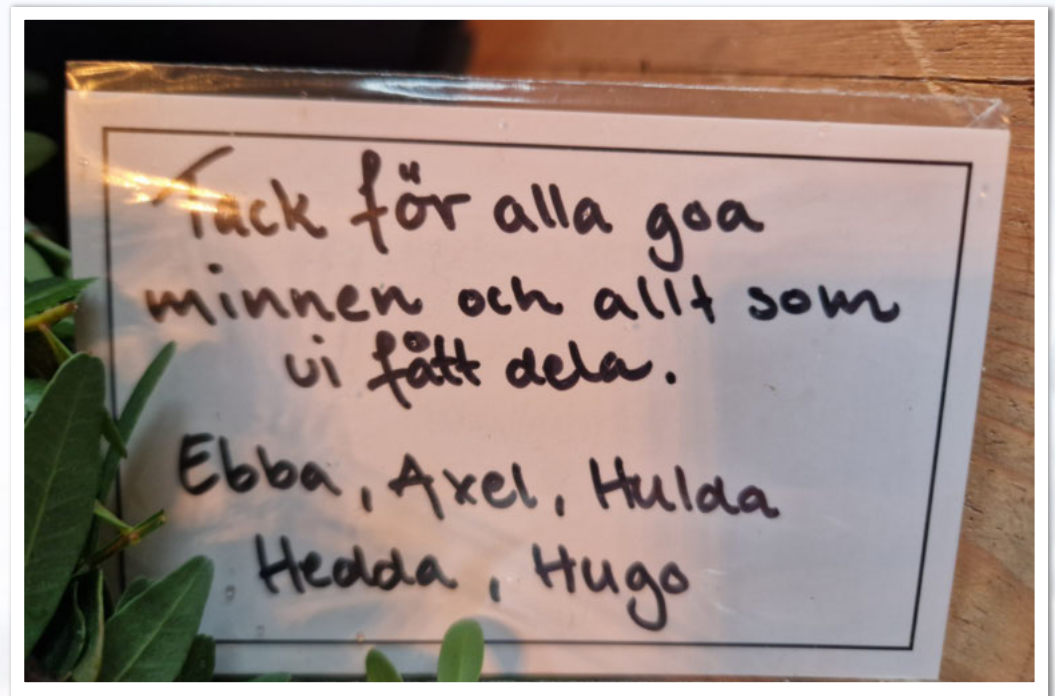 Tack för alla goa
minnen och allt som
vi fått dela.
Ebba, Axel, Hulda
Hedda, Hugo